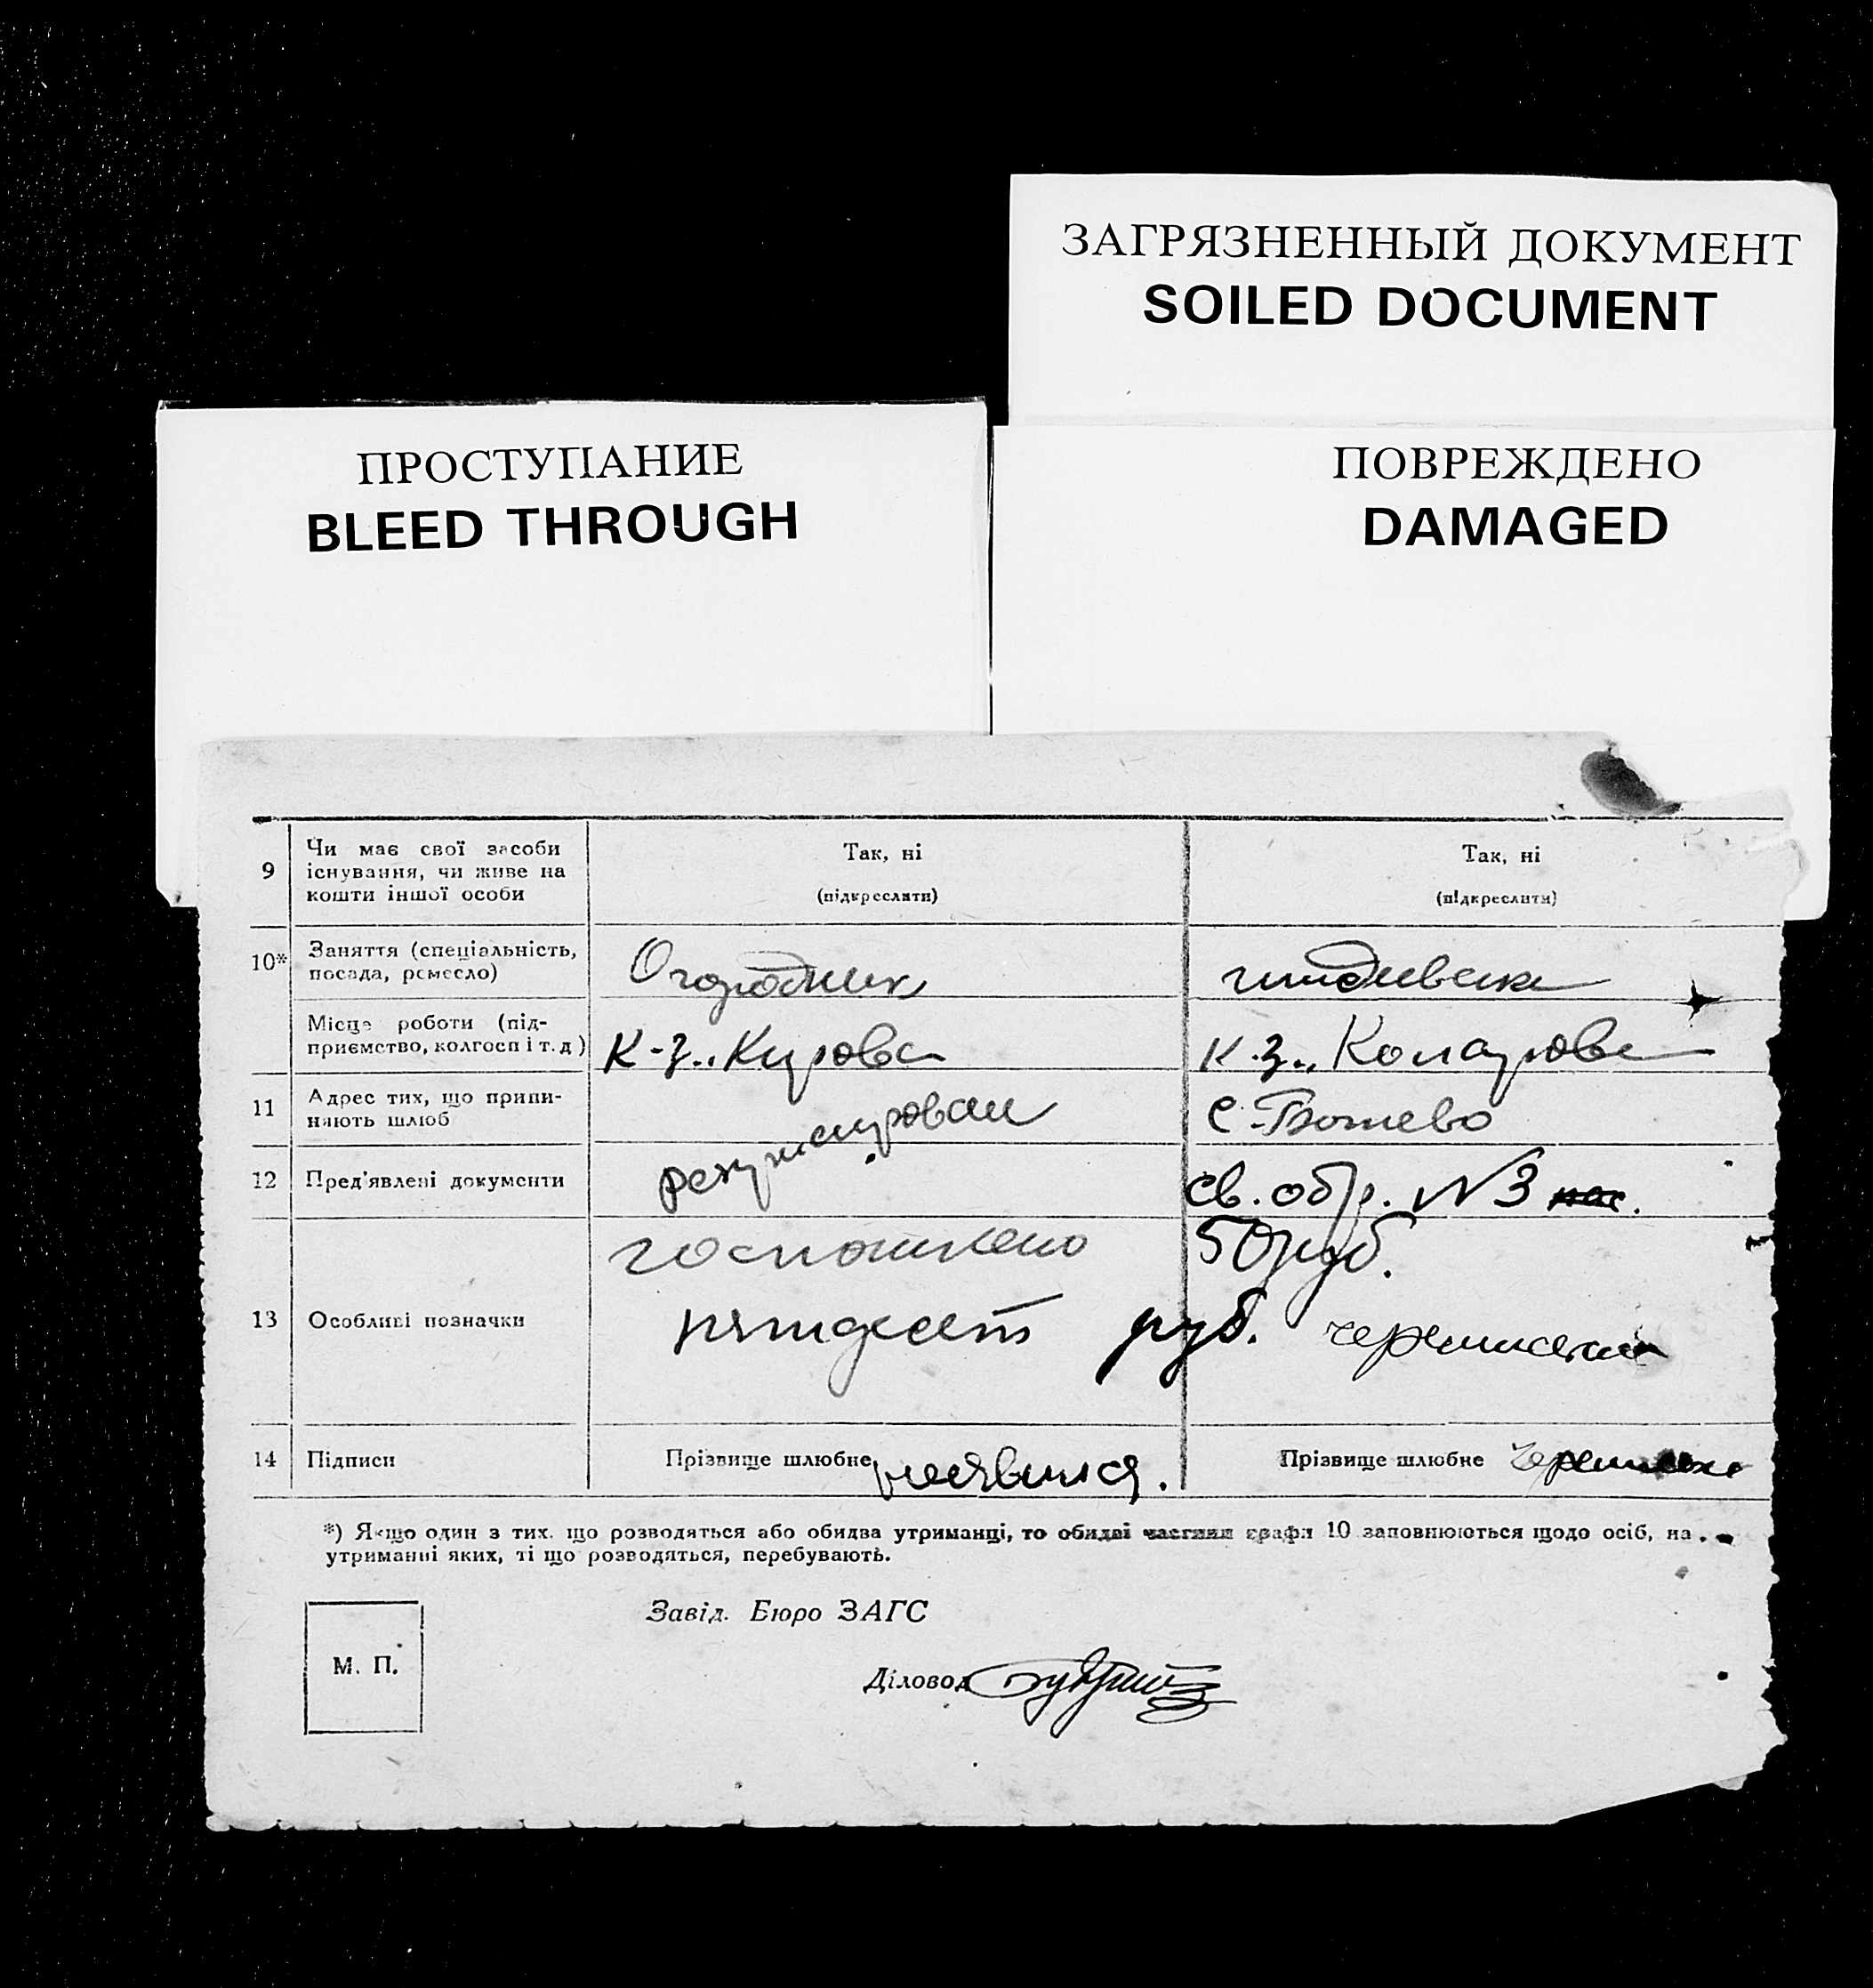 ЗАГРЯЗНЕННЫЙ ДОКУМЕНТ
SOILED DOCUMENT
ПРОСТУПАНИЕ
BLEED THROUGH
ПОВРЕЖДЕНО
DAMAGED
9 Чи має свої засоби існування, чи живе на кошти іншої особи
Так, ні
(підкреслити)
Так, ні
(підкреслити)
10* Заняття (спеціальність, посада, ремесло)
Огородник
Місце роботи (підприємство, колгосп і т. д)
К-з „Кирова
к-з „Коларова
11 Адрес тих, що припиняють шлюб
с. Ботево
12 Пред'явлені документи
св. обр. №3
13 Особливі позначки
50 руб.
пятдесят руб.
14 Підписи
Прізвище шлюбне неявился.
Прізвище шлюбне
*) Якщо один з тих. що розводяться або обидва утриманці, то обидві частини графи 10 заповнюються щодо осіб, на
утриманні яких, ті що розводяться, перебувають.
Завід. Бюро ЗАГС
М. П.
Діловод